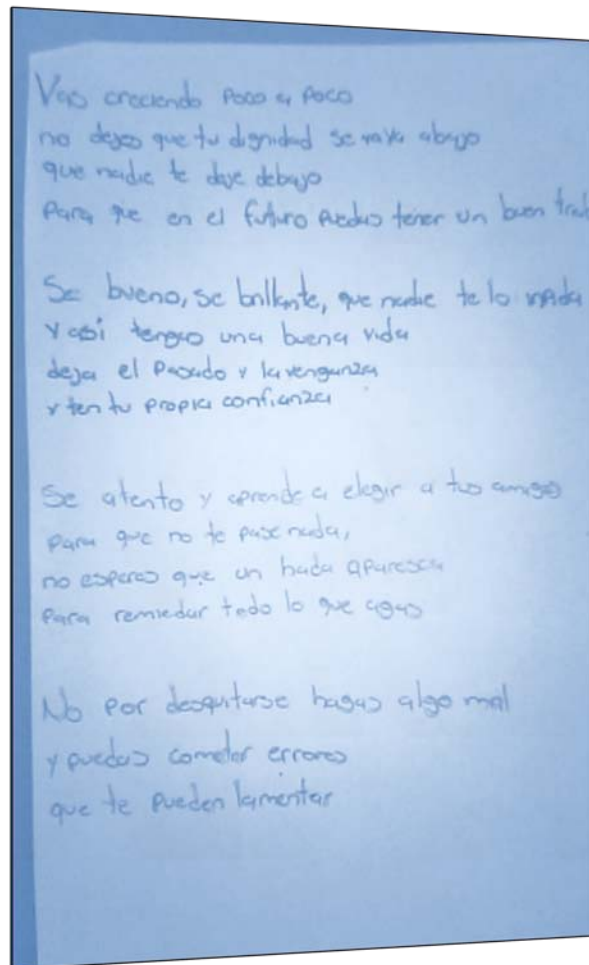 Vas creciendo poco a poco
no dejes que tu dignidad se vaya abajo
que nadie te deje debajo
Para que en el futuro puedas tener un buen
Se bueno, se brillante, que nadie te lo impida
y así tengas una buena vida
deja el pasado y la venganza
y ten tu propia confianza
Se atento y aprende a elegir a tus amigos
para que no te pase nada,
no esperes que un hada aparesca
para remiedar todo lo que agas
No por desquitarse hagas algo mal
y puedas cometer errores
que te pueden lamentar